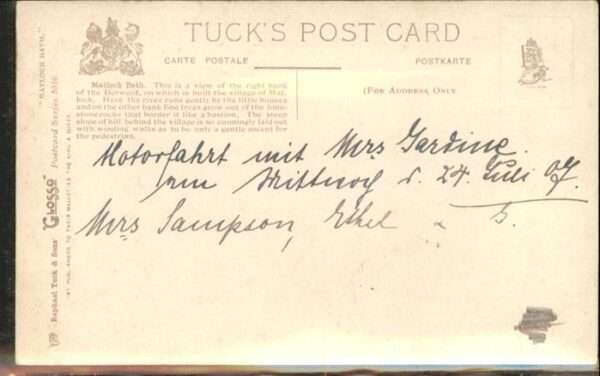 TUCK'S POST CARD
CARTE POSTALE
POSTKARTE
Matlock Bath. This is a view of the right bank
of the Derwent, on which is built the village of Mat-
lock. Here the river runs gently by the little houses
and on the other bank fine trees grow out of the lime-
stone rocks that border it like a bastion. The steep
slope of hill behind the village is so cunningly laid out
with winding walks as to be only a gentle ascent for
the pedestrian.
(FOR ADDRESS ONLY
"MATLOCK BATH."
Raphael Tuck & Sons' "GLOSSO" Postcard Series
Motorfahrt mit Mrs Gardine.
am Mittwoch d. 24. Juli 07.
Mrs Sampson, Ethel